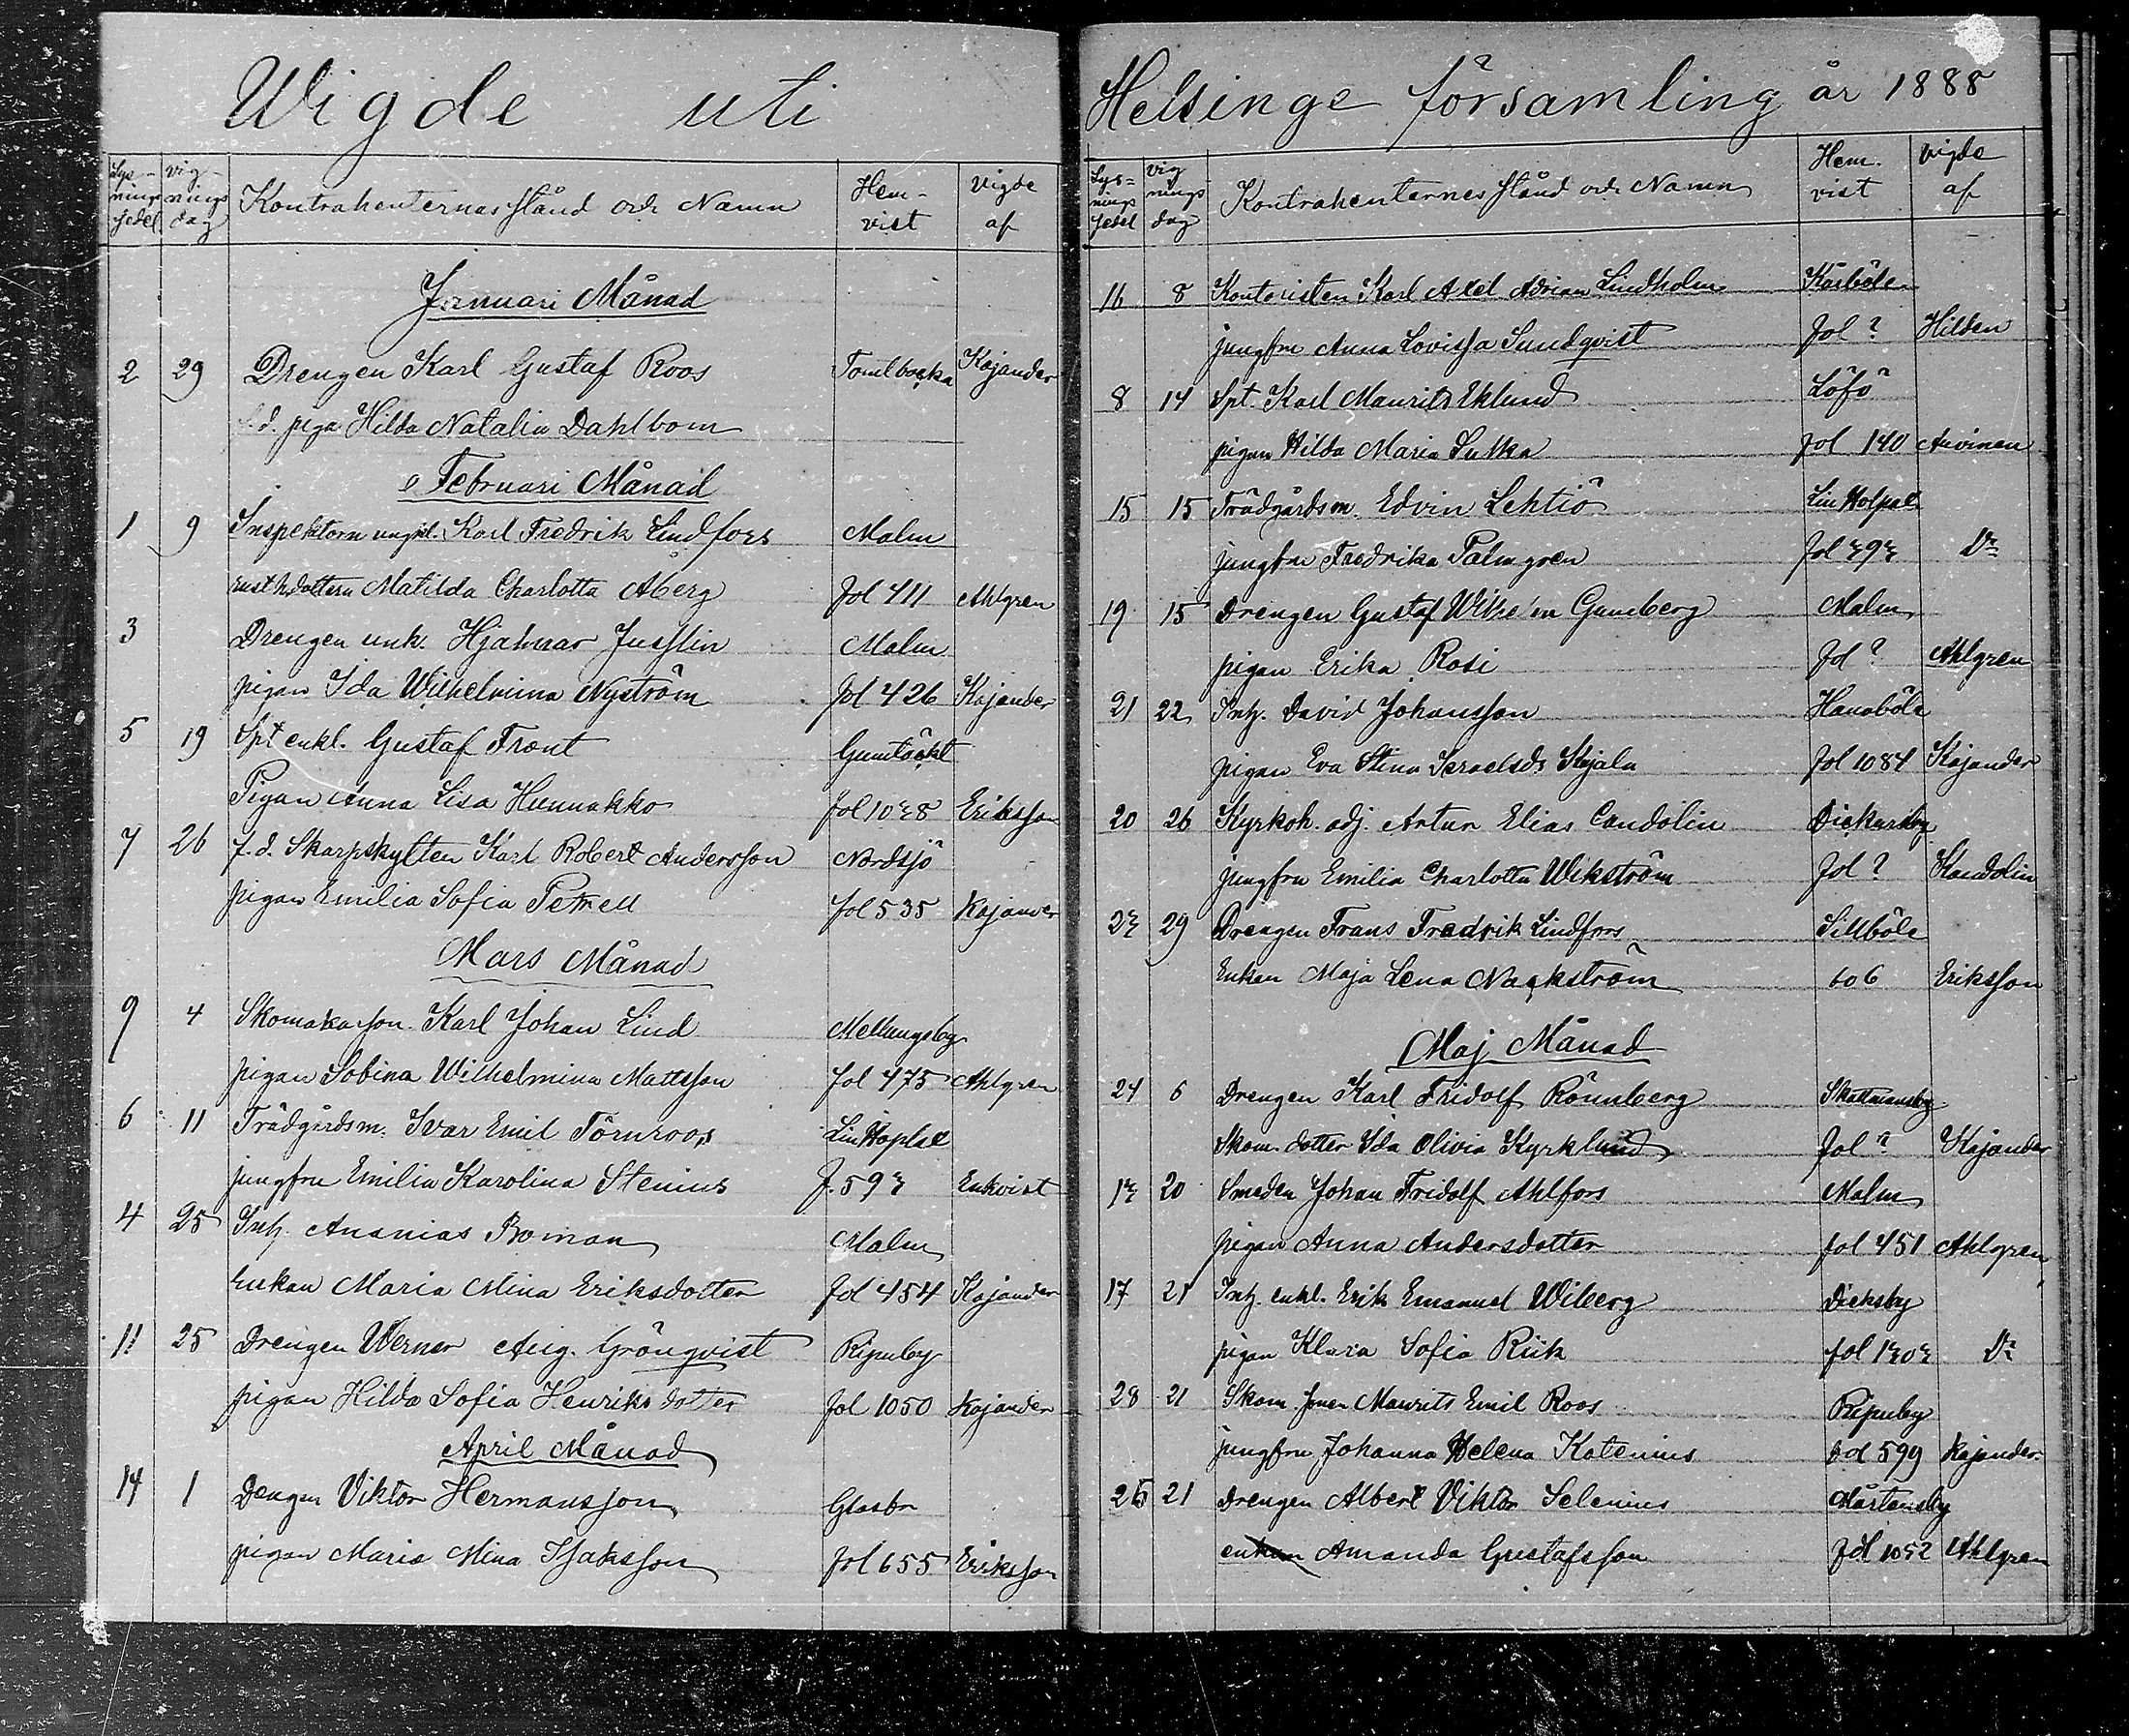 Wigde uti
Lysningssedel vigningsdag Kontrahenternas stånd och Namn Hemvist Vigde af
Januari Månad
2 29 Drengen Karl Gustaf Roos Tomtbacka Kajander
f.d. piga Hilda Natalia Dahlbom
Februari Månad
1 9 Inspektorn ungk. Karl Fredrik Lindfors Malm
rusth.dottern Matilda Charlotta Åberg fol 411 Ahlgren
3 Drengen unk. Hjalmar Jusslin Malm
pigan Ida Wilhelmina Nyström fol 426 Kajander
5 19 Spt enkl. Gustaf Frant Gumtäckt
Pigan Anna Lisa Hunnakko fol 1028 Eriksson
7 26 f.d. Skarpskytten Karl Robert Andersson Nordsjö
pigan Emilia Sofia Petrell fol 535 Kajander
Mars Månad
9 4 Skomakarson Karl Johan Lind Mellungsby
pigan Sobina Wilhelmina Mattsson fol 475 Ahlgren
6 11 Trädgårdsm. Ivar Emil Törnroos
jungfru Emilia Karolina Stenius f. 592 Enkvist
4 25 Inh. Ananias Boman Malm
enkan Maria Mina Eriksdotter fol 454 Kajander
11 25 Drengen Werner Aug. Grönqvist Ripuby
pigan Hilda Sofia Henriksdotter fol 1050 Kajander
April Månad
14 1 Dengen Viktor Hermansson Glasbr
pigan Maria Mina Isaksson fol 655 Eriksson
Helsinge församling år 1888
Lysningssedel vigningsdag Kontrahenternes stånd och Namn Hemvist Vigde af
16 8 Kontoristen Karl Axel Adrian Lindholm Kårböle
jungfru Anna Lovissa Sundqvist fol ? Hilden
8 14 Spt. Karl Maurits Eklund Löfö
pigan Hilda Maria Sutka fol 140 Auvinen
15 15 Trädgårdsm. Edvin Lehtiö
jungfru Fredrika Palmgren fol 292 Do
19 15 Drengen Gustaf Wilhelm Gumberg Malm
pigan Erika Rosi fol ? Ahlgren
21 22 Inh. David Johansson Hanaböle
pigan Eva Stina Israelsdr Skjala fol 1084 Kajander
20 26 Kyrkoh. adj. Artur Elias Candolin Dickursby
jungfru Emilia Charlotta Wikström fol ? Kandolin
22 29 Drengen Frans Fredrik Lindfors Sillböle
Enkan Maja Lena Nackström 606 Eriksson
Maj Månad
24 6 Drengen Karl Fridolf Rönnberg Skattmansby
Skom. dotter Ida Olivia Kyrklund fol ? Kajander
12 20 Smeden Johan Fridolf Ahlfors Malm
pigan Anna Andersdotter fol 451 Ahlgren
17 21 Inh. enkl. Erik Emanuel Wiberg Dicksby
pigan Klara Sofia Riik fol 1202 Do
28 21 Skom. sonen Maurits Emil Roos Ripuby
jungfru Johanna Helena Katenius fol 599 Kajander
26 21 Drengen Albert Viktor Selenius Mårtensby
enkan Amanda Gustafsson fol 1052 Ahlgren